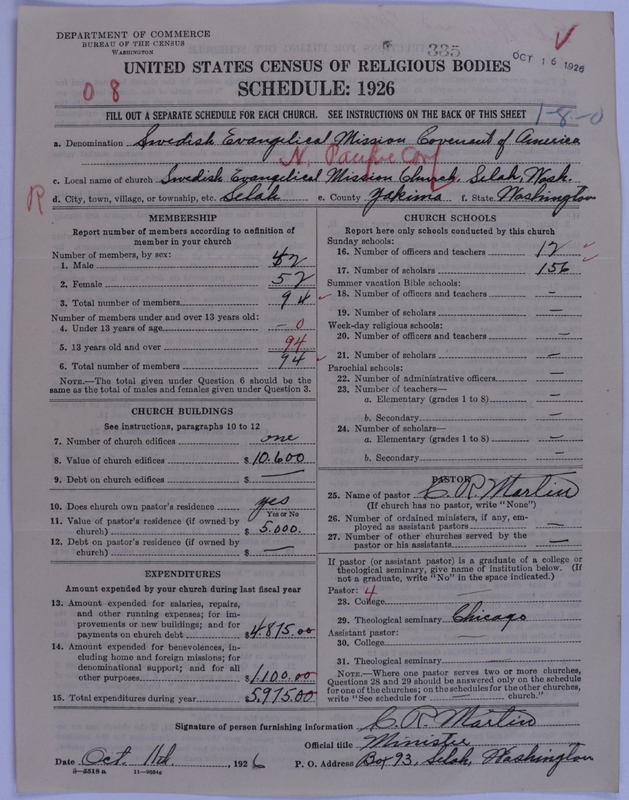 DEPARTMENT OF COMMERCE
BUREAU OF THE CENSUS
WASHINGTON
335
OCT 16 1926
UNITED STATES CENSUS OF RELIGIOUS BODIES
SCHEDULE: 1926
0 8
FILL OUT A SEPARATE SCHEDULE FOR EACH CHURCH. SEE INSTRUCTIONS ON THE BACK OF THIS SHEET
1-8-0
a. Denomination Swedish Evangelical Mission Covenant of America
N. Pacific Conf
c. Local name of church Swedish Evangelical Mission Church, Selah, Wash.
R
d. City, town, village, or township, etc. Selah e. County Yakima f. State Washington
MEMBERSHIP
Report number of members according to definition of
member in your church
Number of members, by sex:
1. Male 42
2. Female 52
3. Total number of members 94
Number of members under and over 13 years old:
4. Under 13 years of age – 0
5. 13 years old and over 94
6. Total number of members 94
NOTE.—The total given under Question 6 should be the
same as the total of males and females given under Question 3.
CHURCH BUILDINGS
See instructions, paragraphs 10 to 12
7. Number of church edifices one
8. Value of church edifices $10.600
9. Debt on church edifices $ —
10. Does church own pastor's residence yes
Yes or No
11. Value of pastor's residence (if owned by
church) $ 5.000.
12. Debt on pastor's residence (if owned by
church) $ —
EXPENDITURES
Amount expended by your church during last fiscal year
13. Amount expended for salaries, repairs,
and other running expenses; for im-
provements or new buildings; and for
payments on church debt $4.875.00
14. Amount expended for benevolences, in-
cluding home and foreign missions; for
denominational support; and for all
other purposes $1.100.00
15. Total expenditures during year 5975.00
CHURCH SCHOOLS
Report here only schools conducted by this church
Sunday schools:
16. Number of officers and teachers 12
17. Number of scholars 156
Summer vacation Bible schools:
18. Number of officers and teachers —
19. Number of scholars —
Week-day religious schools:
20. Number of officers and teachers —
21. Number of scholars —
Parochial schools:
22. Number of administrative officers —
23. Number of teachers—
a. Elementary (grades 1 to 8) —
b. Secondary —
24. Number of scholars—
a. Elementary (grades 1 to 8) —
b. Secondary —
PASTOR
25. Name of pastor C. R. Martin
(If church has no pastor, write "None")
26. Number of ordained ministers, if any, em-
ployed as assistant pastors —
27. Number of other churches served by the
pastor or his assistants —
If pastor (or assistant pastor) is a graduate of a college or
theological seminary, give name of institution below. (If
not a graduate, write "No" in the space indicated.)
Pastor: 4
28. College —
29. Theological seminary Chicago
Assistant pastor:
30. College —
31. Theological seminary —
NOTE.—Where one pastor serves two or more churches,
Questions 28 and 29 should be answered only on the schedule
for one of the churches; on the schedules for the other churches,
write "See schedule for — church."
Signature of person furnishing information C. R. Martin
Official title Minister
Date Oct. 11th, 1926 P. O. Address Box 93, Selah, Washington
8—5518 a